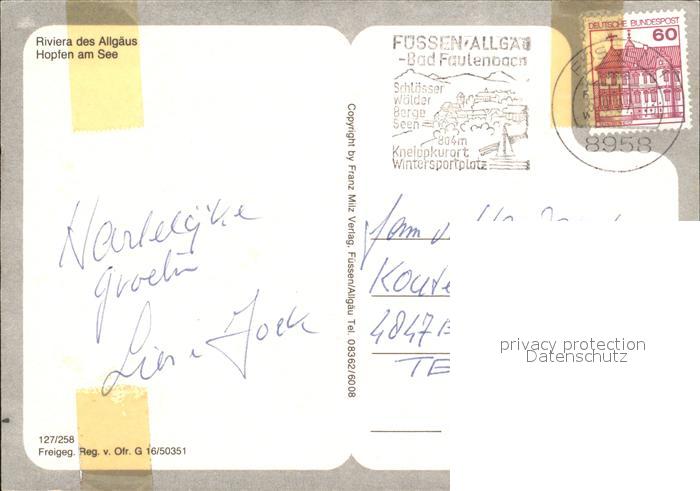 Riviera des Allgäus
Hopfen am See
FÜSSEN/ALLGÄU
-Bad Faulenbach
Schlösser
Wälder
Berge
Seen
804m
Kneippkurort
Wintersportplatz
DEUTSCHE BUNDESPOST
60
8958
Copyright by Franz Milz Verlag, Füssen/Allgäu Tel. 08362/6008
Hartelijke
groeten
4847
TE
privacy protection
Datenschutz
127/258
Freigeg. Reg. v. Ofr. G 16/50351